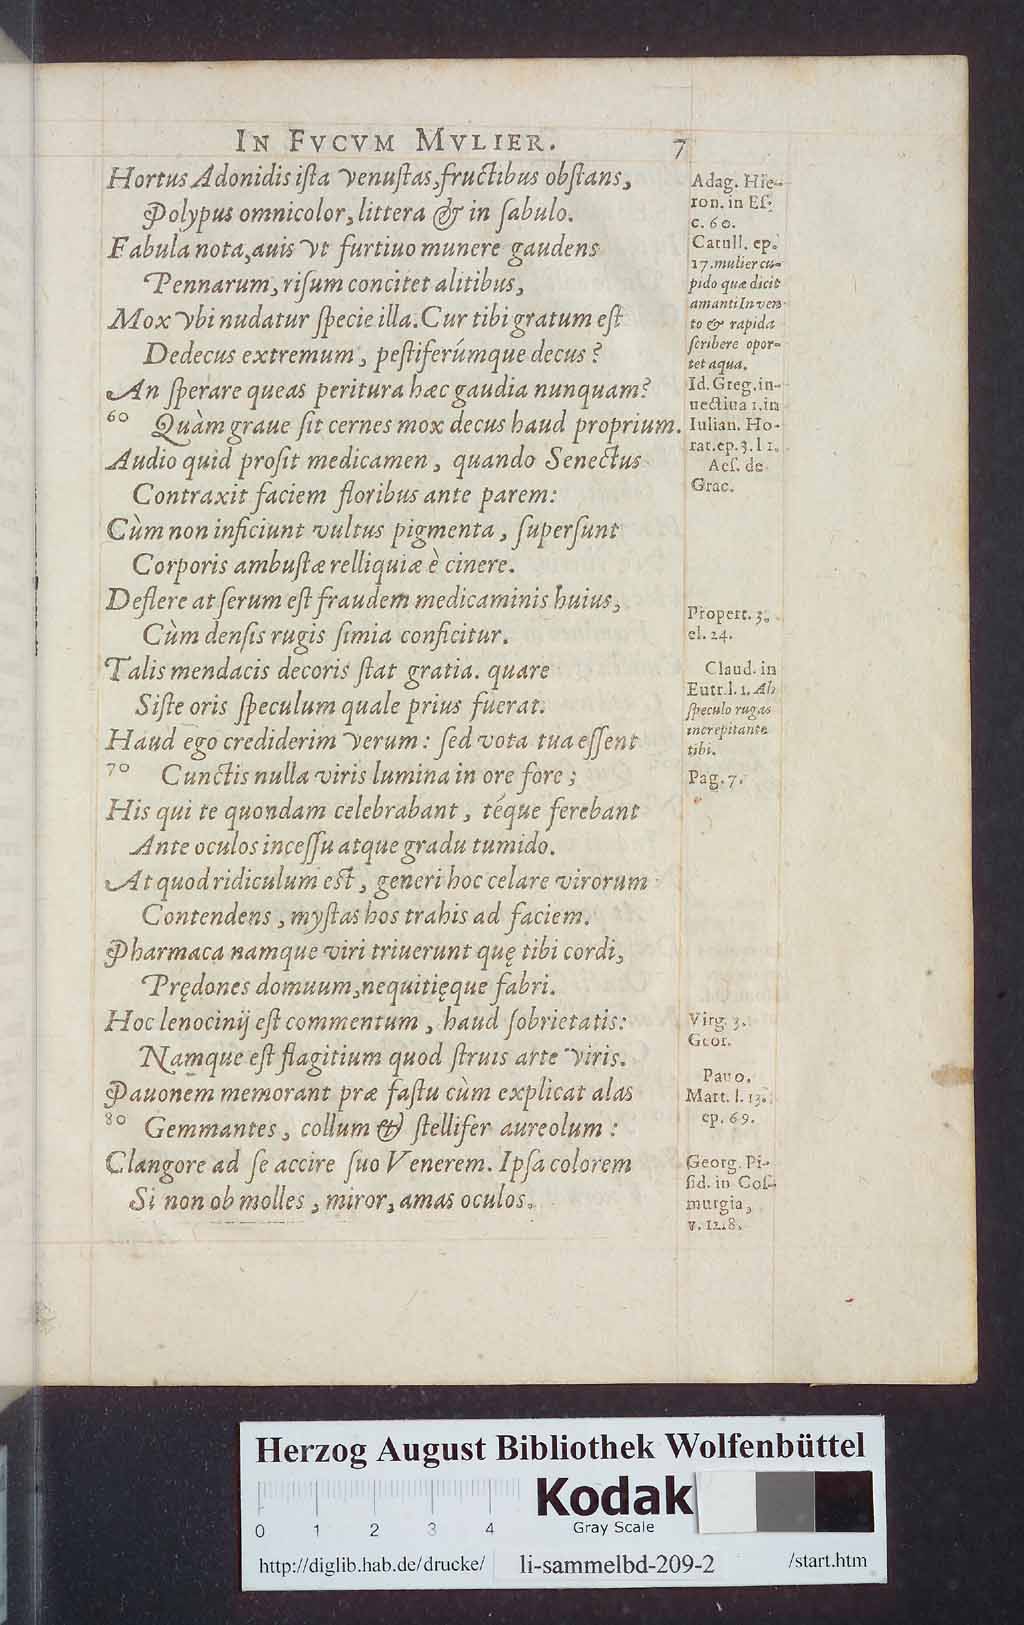 IN FVCVM MVLIER. 7
Hortus Adonidis iſta venuſtas, fructibus obſtans,
Polypus omnicolor, littera & in ſabulo.
Fabula nota, auis vt furtiuo munere gaudens
Pennarum, riſum concitet alitibus,
Mox vbi nudatur ſpecie illa. Cur tibi gratum eſt
Dedecus extremum, peſtiferúmque decus?
An ſperare queas peritura hæc gaudia nunquam?
60 Quàm graue ſit cernes mox decus haud proprium.
Audio quid proſit medicamen, quando Senectus
Contraxit faciem floribus ante parem:
Cùm non inficiunt vultus pigmenta, ſuperſunt
Corporis ambuſtæ relliquiæ è cinere.
Deflere at ſerum eſt fraudem medicaminis huius,
Cùm denſis rugis ſimia conficitur.
Talis mendacis decoris ſtat gratia. quare
Siſte oris ſpeculum quale prius fuerat.
Haud ego crediderim verum: ſed vota tua eſſent
70 Cunctis nulla viris lumina in ore fore;
His qui te quondam celebrabant, téque ferebant
Ante oculos inceſſu atque gradu tumido.
At quod ridiculum est, generi hoc celare virorum
Contendens, myſtas hos trahis ad faciem.
Pharmaca namque viri triuerunt quę tibi cordi,
Prędones domuum, nequitięque fabri.
Hoc lenocinij eſt commentum, haud ſobrietatis:
Namque eſt flagitium quod ſtruis arte viris.
Pauonem memorant præ faſtu cùm explicat alas
80 Gemmantes, collum & ſtellifer aureolum:
Clangore ad ſe accire ſuo Venerem. Ipſa colorem
Si non ob molles, miror, amas oculos.
Adag. Hie-
ron. in Eſ.
c. 60.
Catull. ep.
17. mulier cu-
pido quæ dicit
amanti In ven-
to & rapida
ſcribere opor-
tet aqua.
Id. Greg. in-
uectiua 1. in
Iulian. Ho-
rat. ep. 3. l 1.
Aeſ. de
Grac.
Propert. 3.
el. 24.
Claud. in
Eutr. l. 1. Ab
ſpeculo rugas
increpitante
tibi.
Pag. 7.
Virg. 3.
Geor.
Pauo.
Mart. l. 13.
ep. 69.
Georg. Pi-
ſid. in Coſ-
murgia,
v. 1218.
Herzog August Bibliothek Wolfenbüttel
Kodak
Gray Scale
0 1 2 3 4
http://diglib.hab.de/drucke/ li-sammelbd-209-2 /start.htm